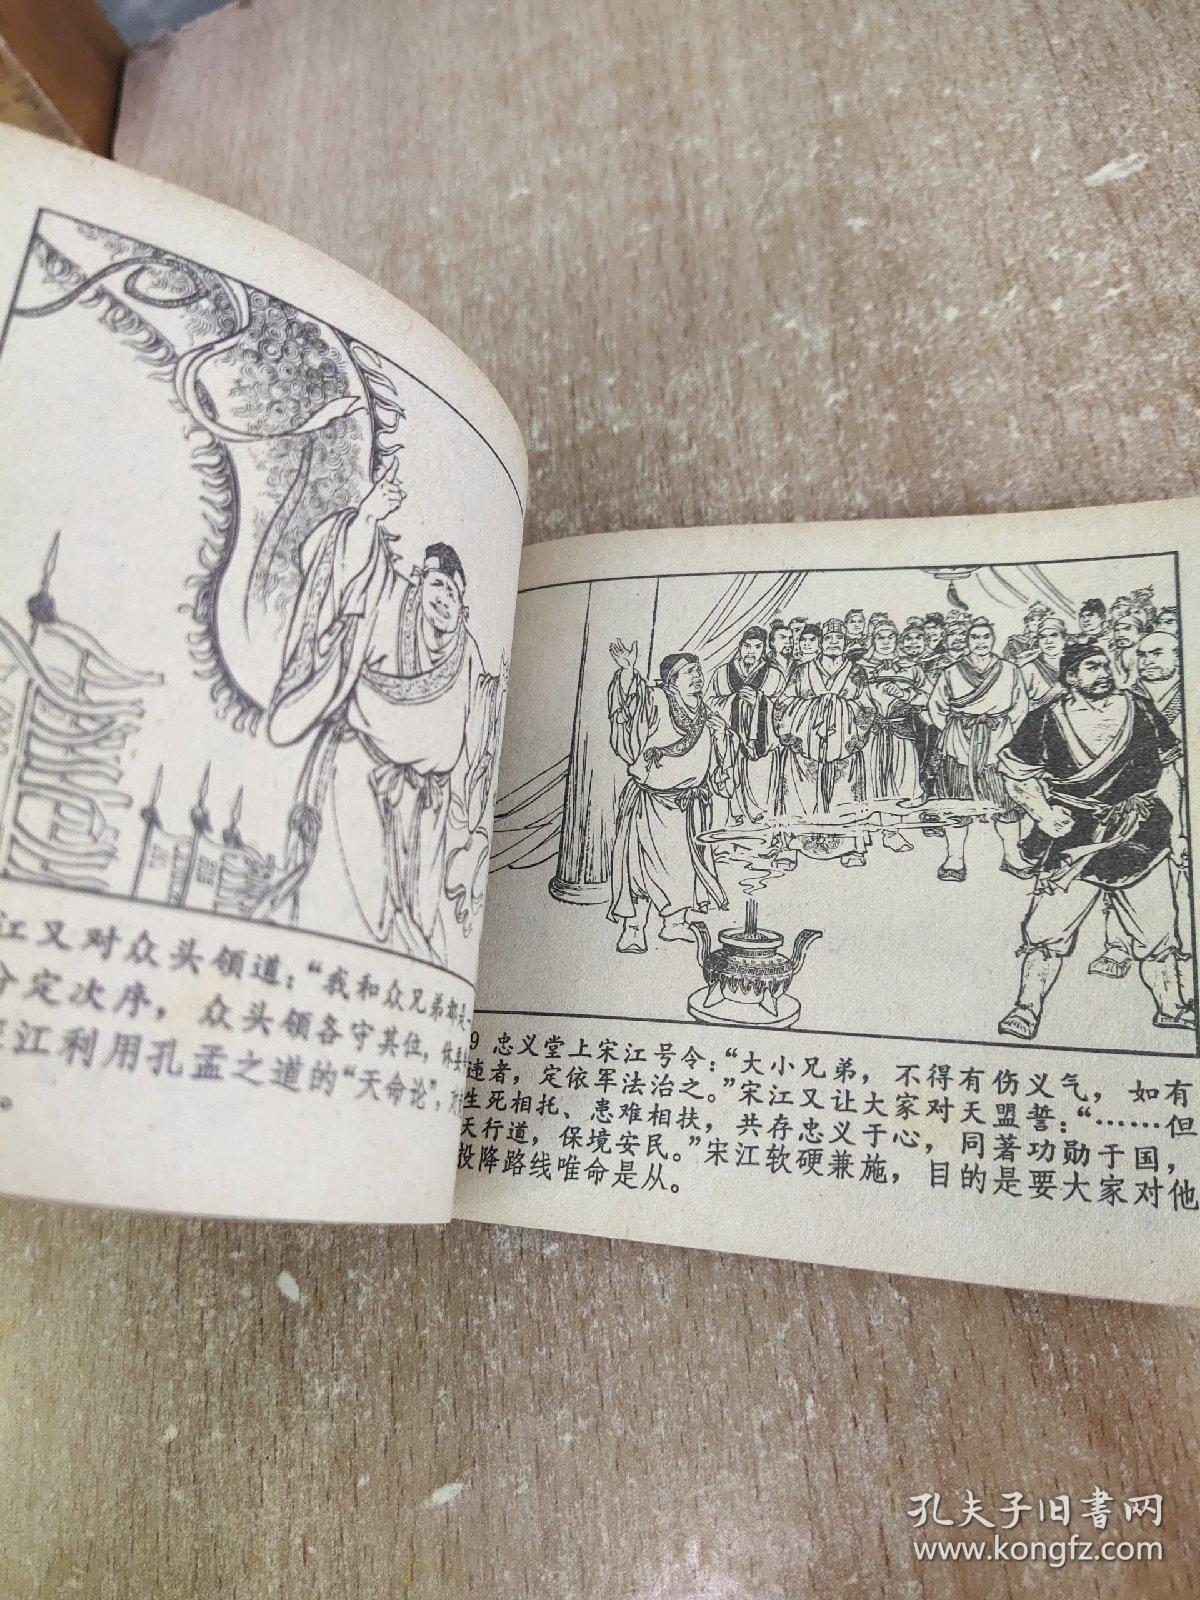 江又对众头领道：“我和众兄弟都是
分定次序，众头领各守其位，休要
江利用孔孟之道的“天命论”，
9 忠义堂上宋江号令：“大小兄弟，不得有伤义气，如有
违者，定依军法治之。”宋江又让大家对天盟誓：“……但
生死相托、患难相扶，共存忠义于心，同著功勋于国，
天行道，保境安民。”宋江软硬兼施，目的是要大家对他
投降路线唯命是从。
孔夫子旧書网
www.kongfz.com